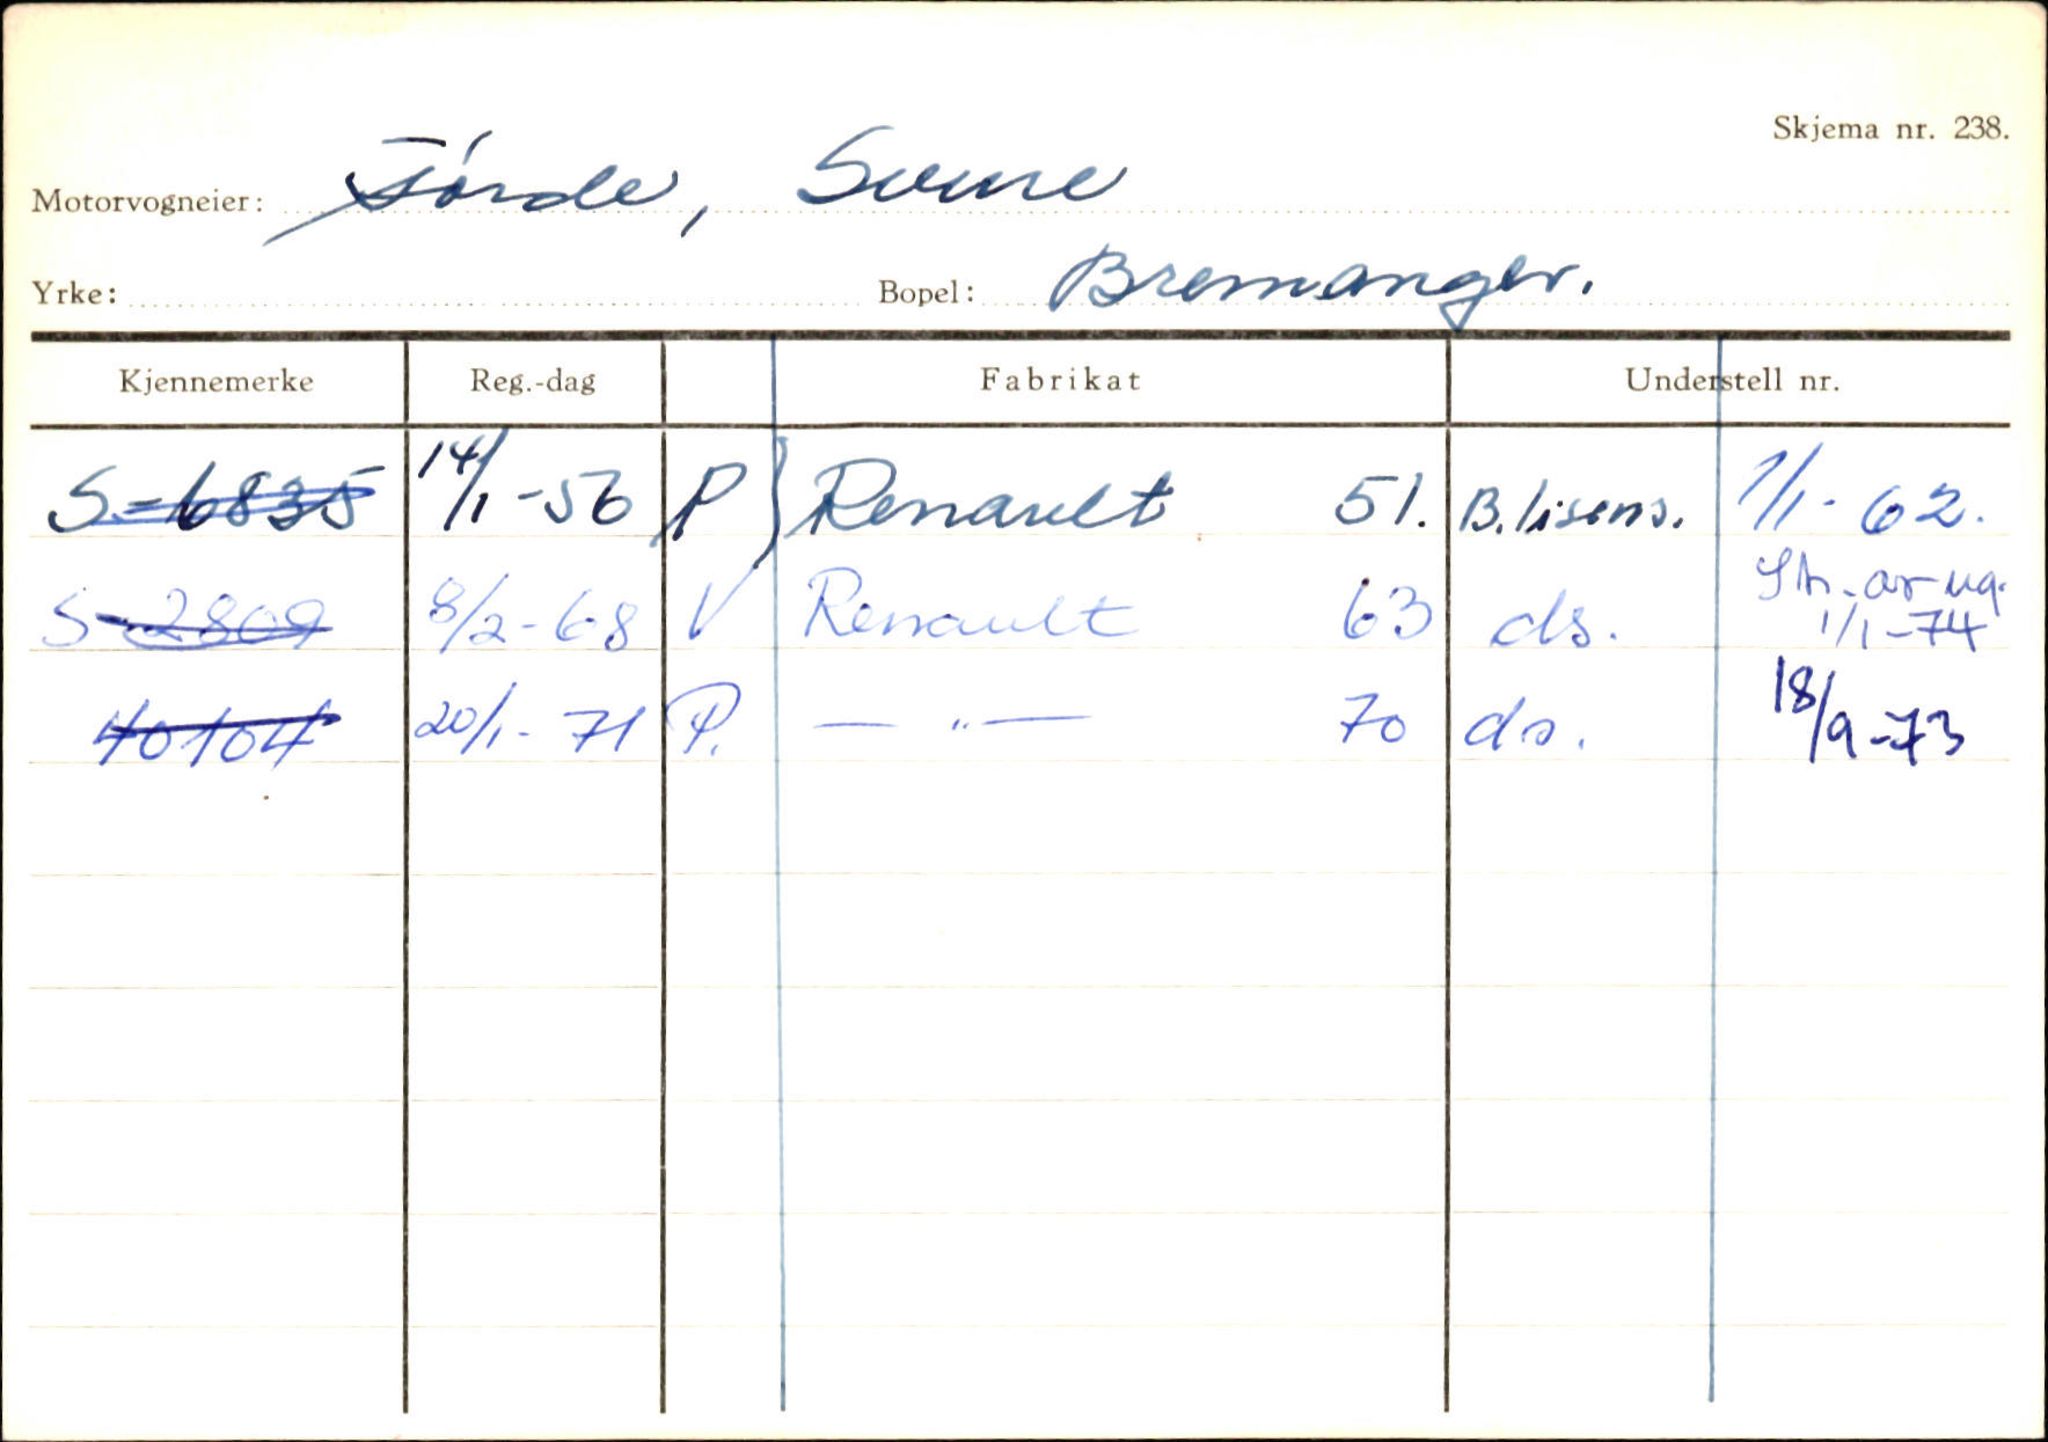 Skjema nr. 238.
Motorvogneier: Førde, Sverre
Yrke: Bopel: Bremanger.
Kjennemerke Reg.-dag Fabrikat Understell nr.
S-6835 14/1-56 P) Renault 51. B.lisens. 1/1-62.
S-2809 8/2-68 V Renault 63 ds. 1/1-74
40104 20/1-71 P. — " — 70 ds. 18/9-73